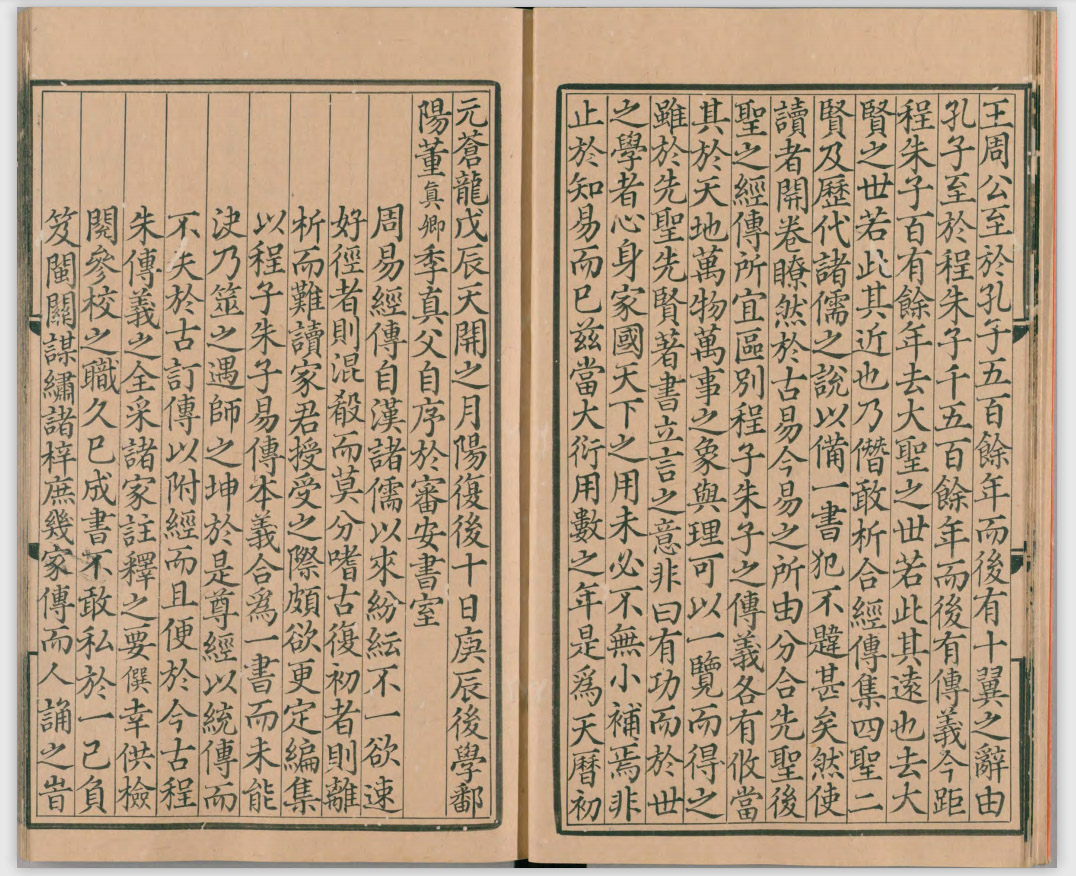 王周公至於孔子五百餘年而後有十翼之辭由
孔子至於程朱子千五百餘年而後有傳義今距
程朱子百有餘年去大聖之世若此其遠也去大
賢之世若此其近也乃僭敢析合經傳集四聖二
賢及歷代諸儒之說以備一書犯不韙甚矣然使
讀者開卷瞭然於古易今易之所由分合先聖後
聖之經傳所宜區別程子朱子之傳義各有攸當
其於天地萬物萬事之象與理可以一覽而得之
雖於先聖先賢著書立言之意非曰有功而於世
之學者心身家國天下之用未必不無小補焉非
止於知易而已茲當大衍用數之年是爲天曆初
元蒼龍戊辰天開之月陽復後十日庚辰後學鄱
陽董真卿季真父自序於審安書室
周易經傳自漢諸儒以來紛紜不一欲速
好徑者則混殽而莫分嗜古復初者則離
析而難讀家君授受之際頗欲更定編集
以程子朱子易傳本義合爲一書而未能
決乃筮之遇師之坤於是尊經以統傳而
不失於古訂傳以附經而且便於今古程
朱傳義之全采諸家註釋之要僎幸供檢
閱參校之職久已成書不敢私於一己負
笈閩關謀繡諸梓庶幾家傳而人誦之旹